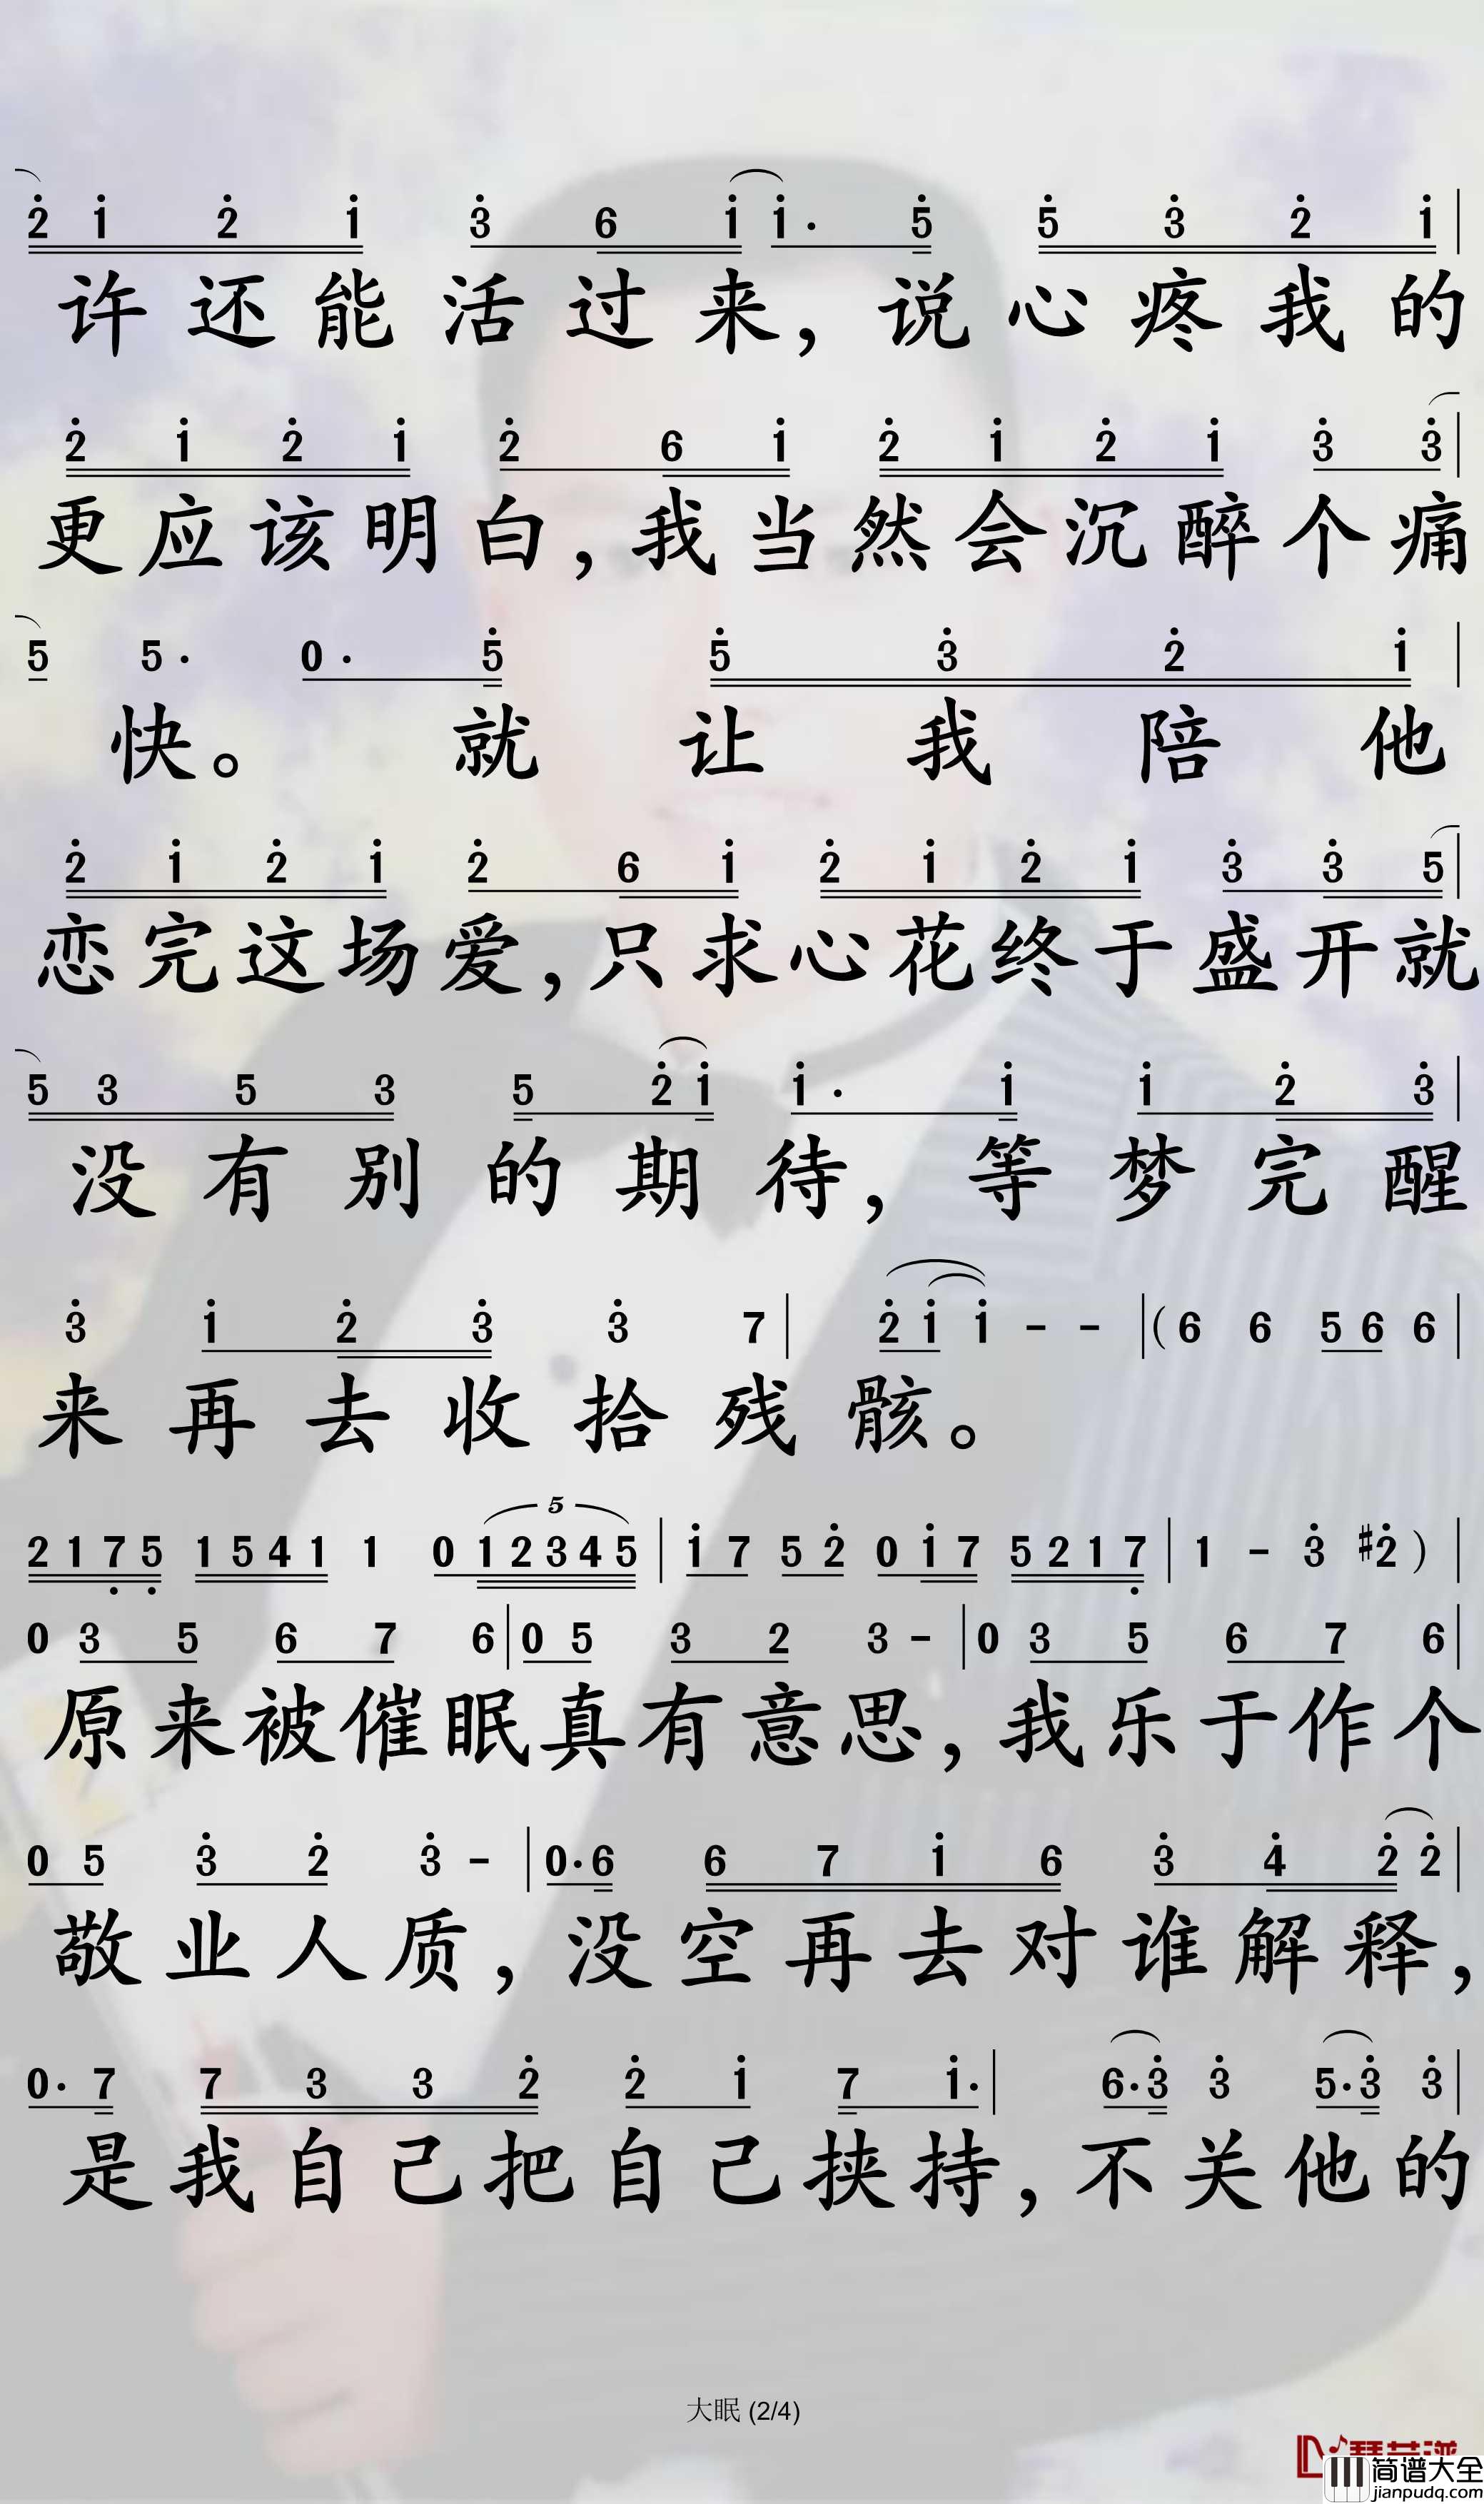 2 1 2 1 3 6 1 1· 5 5 3 2 1
许还能活过来，说心疼我的
2 1 2 1 2 6 1 2 1 2 1 3 3
更应该明白，我当然会沉醉个痛
5 5· 0· 5 5 3 2 1
快。就让我陪他
2 1 2 1 2 6 1 2 1 2 1 3 3 5
恋完这场爱，只求心花终于盛开就
5 3 5 3 5 2 1 1· 1 1 2 3
没有别的期待，等梦完醒
3 1 2 3 3 7 2 1 1 - - (6 6 5 6 6
来再去收拾残骸。
5
2 1 7 5 1 5 4 1 1 0 1 2 3 4 5 1 7 5 2 0 1 7 5 2 1 7 1 - 3 #2)
0 3 5 6 7 6 0 5 3 2 3 - 0 3 5 6 7 6
原来被催眠真有意思，我乐于作个
0 5 3 2 3 - 0· 6 6 7 1 6 3 4 2 2
敬业人质，没空再去对谁解释，
0· 7 7 3 3 2 2 1 7 1· 6· 3 3 5· 3 3
是我自己把自己挟持，不关他的
大眠 (2/4)
简谱大全
jianpudq.com